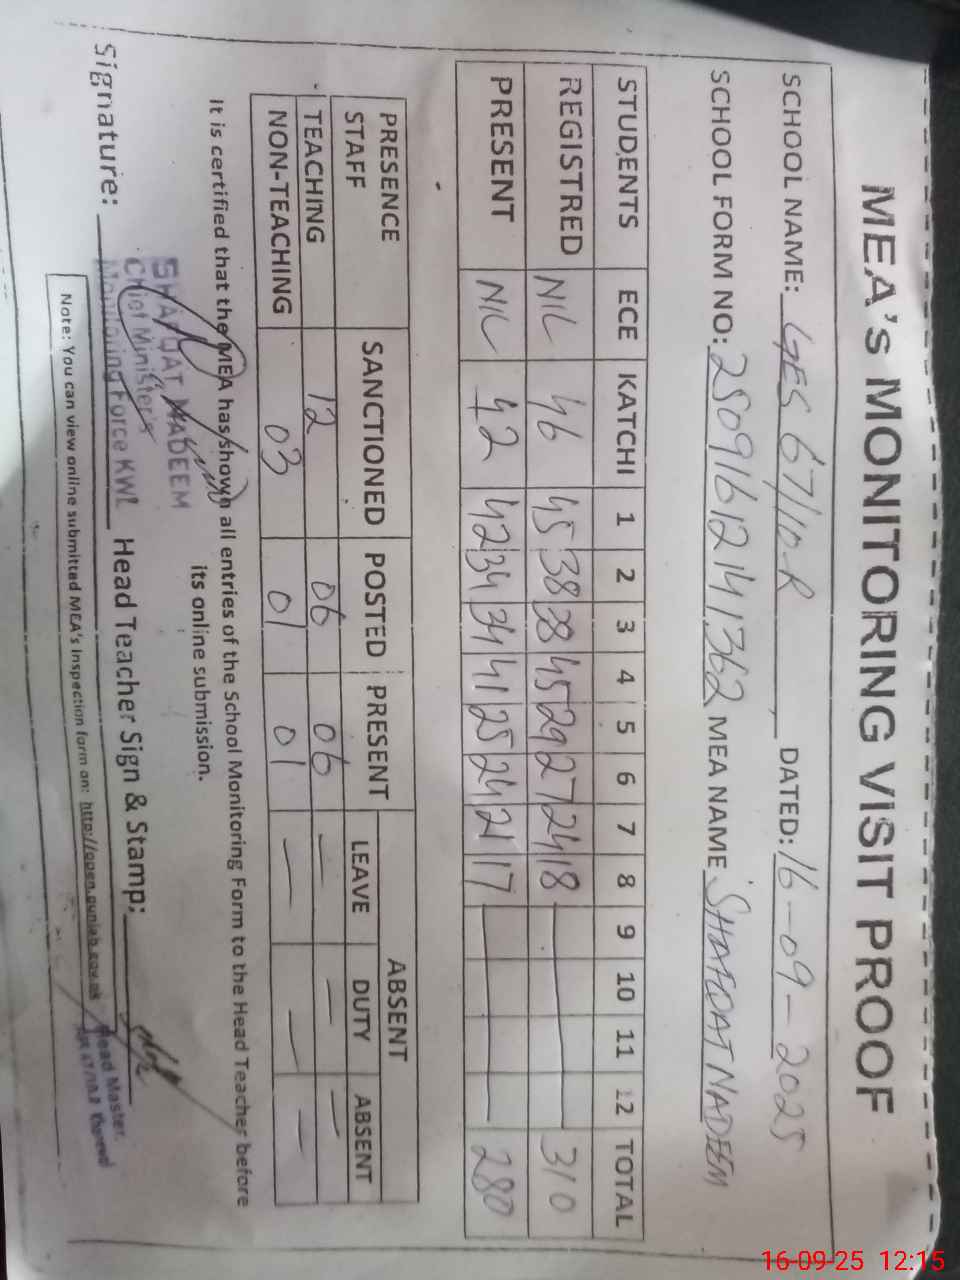 MEA's MONITORING VISIT PROOF
SCHOOL NAME: GES 67/10-R DATED: 16-09-2025
SCHOOL FORM NO: 25091612141362 MEA NAME SHAFQAT NADEEM
STUDENTS ECE KATCHI 1 2 3 4 5 6 7 8 9 10 11 12 TOTAL
REGISTRED NIL 46 45 38 38 45 29 27 24 18 310
PRESENT NIL 42 42 34 34 41 25 24 21 17 280
PRESENCE STAFF SANCTIONED POSTED PRESENT ABSENT
LEAVE DUTY ABSENT
TEACHING 12 06 06 — — —
NON-TEACHING 03 01 01 — — —
It is certified that the MEA has shown all entries of the School Monitoring Form to the Head Teacher before
its online submission.
SHAFQAT NADEEM
Chief Minister's
Monitoring Force KWL
Signature: Head Teacher Sign & Stamp:
Head Master
Note: You can view online submitted MEA's Inspection form on: http://open.punjab.gov.pk
16-09-25 12:15